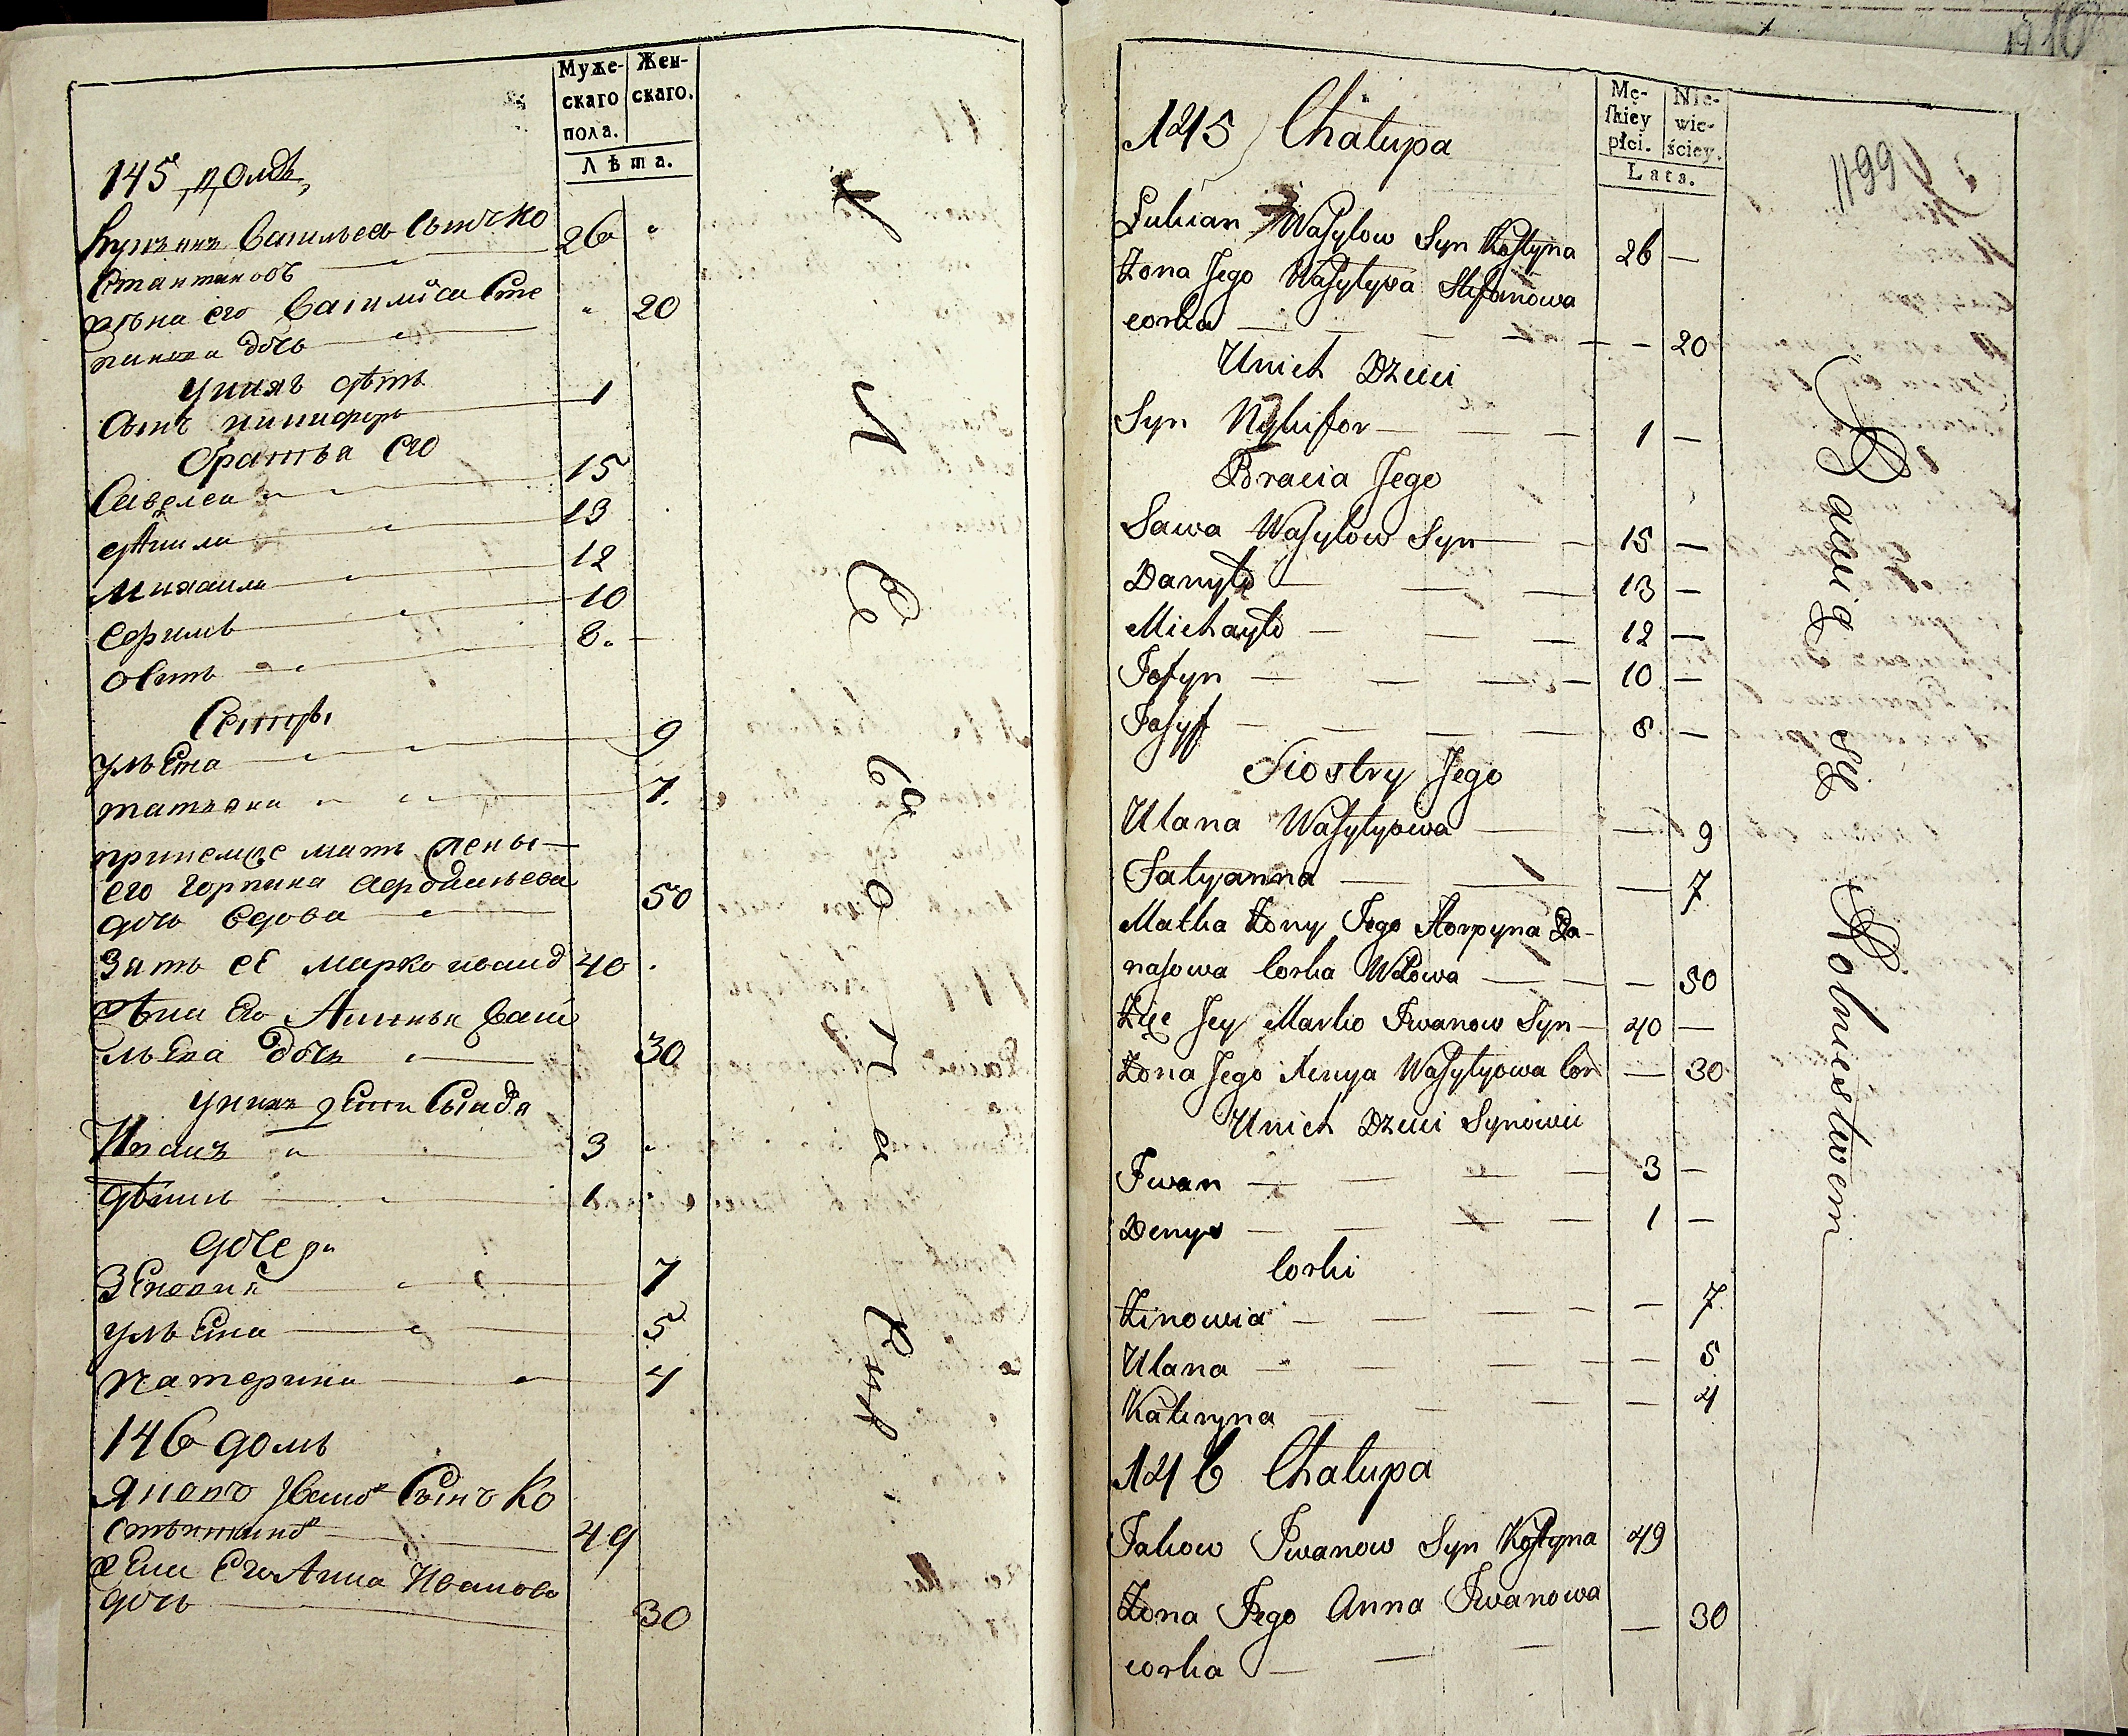 Муже-
скаго
пола.
Жен-
скаго.
Лѣта.
145 домъ
Лукьянъ Васильевъ Сынъ Ко 26
стантиновъ
жена его Василиса Сте 20
панова дочь
У нихъ дѣти
Сынъ Никифоръ 1
братья его
Савелеи 15
Данила 13
Михаила 12
Ефимъ 10
Осипъ 8
Сестры
Ульяна 9
татьяна 7
приемше мать жены
его Горпина
дочь вдова 50
Зять её Марко иванов 40
жена Его Васи
льева дочь 30
у нихъ дети Сыновья
Иванъ 3
1
дочери
Зеновия 7
ульяна 5
Катерина 4
146 домъ
Яковъ Иванов Сынъ Ко
стантинов 49
жена Его Анна Иванова
дочь 30
Хлебопашест
19 10
Mę-
skiey
płci.
Nie-
wie-
ściey.
Lata.
1199
145 Chałupa
Lukian Wasylow Syn Kostyna 26 —
Żona Jego Wasylysa Stefanowa
corka — 20
Unich Dzieci
Syn Nykifor 1 —
Bracia Jego
Sawa Wasylow Syn 15 —
Danyło 13 —
Michayło 12 —
Jefym 10 —
Jasyf 8 —
Siostry Jego
Ulana Wasylyowa — 9
Tatyanna — 7
Matka Żony Jego Horpyna Pa-
nasowa Corka Wdowa — 50
Zięc Jey Marko Iwanow Syn 40 —
Żona Jego Xenya Wasylyowa Cor — 30
Unich Dzieci Synowie
Iwan 3 —
Denys 1 —
Corki
Zinowia — 7
Ulana — 5
Kateryna — 4
146 Chałupa
Jakow Iwanow Syn Kostyna 49
Żona Jego Anna Iwanowa
corka — 30
Bawią się Rolniestwem